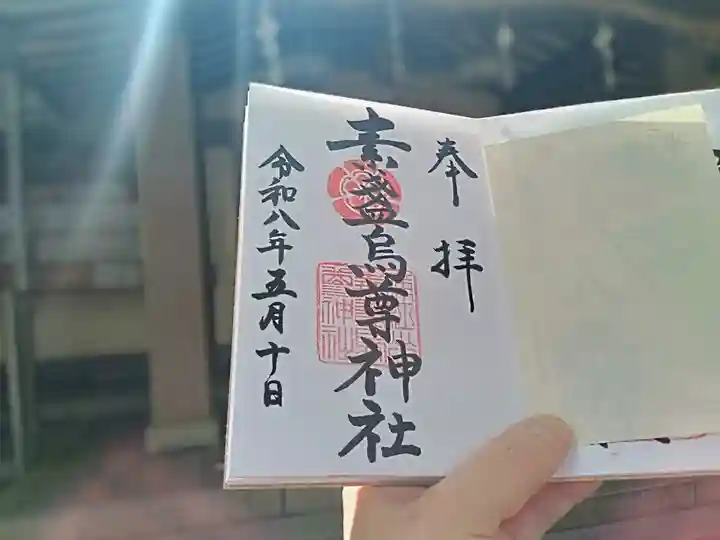 奉拝
素盞烏尊神社
令和八年五月十日